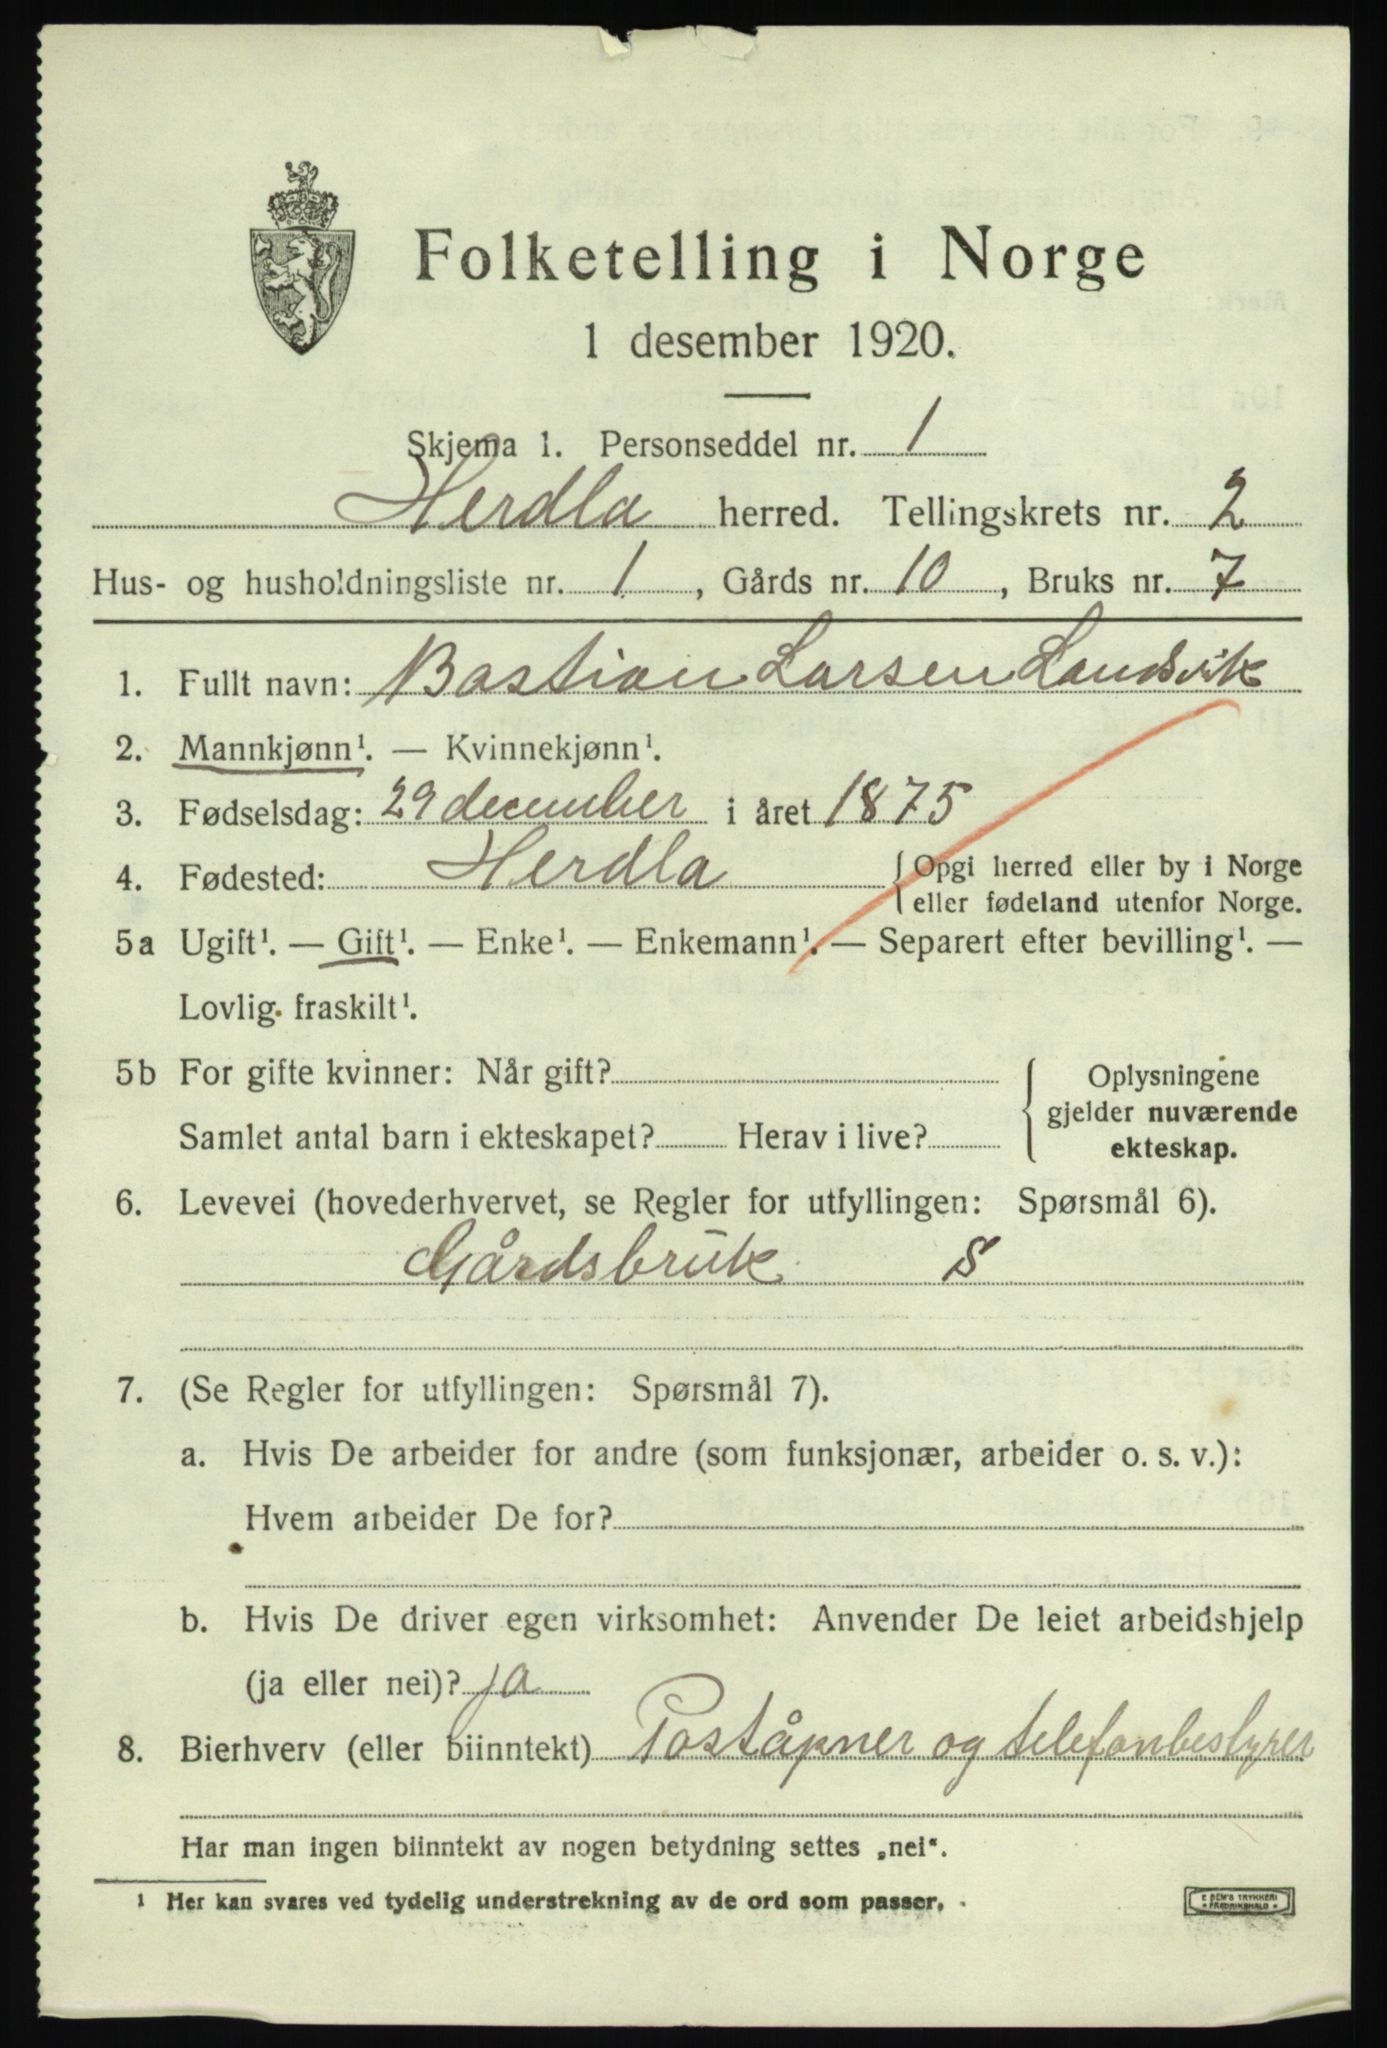 Folketelling i Norge
1 desember 1920.
Skjema 1. Personseddel nr. 1
Herdla herred. Tellingskrets nr. 2
Hus- og husholdningsliste nr. 1, Gårds nr. 10, Bruks nr. 7
1. Fullt navn: Bastian Larsen Landsvik
2. Mannkjønn¹. — Kvinnekjønn¹.
3. Fødselsdag: 29 december i året 1875
4. Fødested: Herdla { Opgi herred eller by i Norge
eller fødeland utenfor Norge.
5a Ugift¹. — Gift¹. — Enke¹. — Enkemann¹. — Separert efter bevilling¹. —
Lovlig fraskilt¹.
5b For gifte kvinner: Når gift? { Oplysningene
gjelder nuværende
Samlet antal barn i ekteskapet? Herav i live?
ekteskap.
6. Levevei (hovederhvervet, se Regler for utfyllingen: Spørsmål 6).
Gårdsbruk S
7. (Se Regler for utfyllingen: Spørsmål 7).
a. Hvis De arbeider for andre (som funksjonær, arbeider o. s. v.):
Hvem arbeider De for?
b. Hvis De driver egen virksomhet: Anvender De leiet arbeidshjelp
(ja eller nei)? ja
8. Bierhverv (eller biinntekt) Poståpner og telefonbestyrer
Har man ingen biinntekt av nogen betydning settes „nei“.
¹ Her kan svares ved tydelig understrekning av de ord som passer.
E SEM'S TRYKKERI
* FREDRIKSHALD *